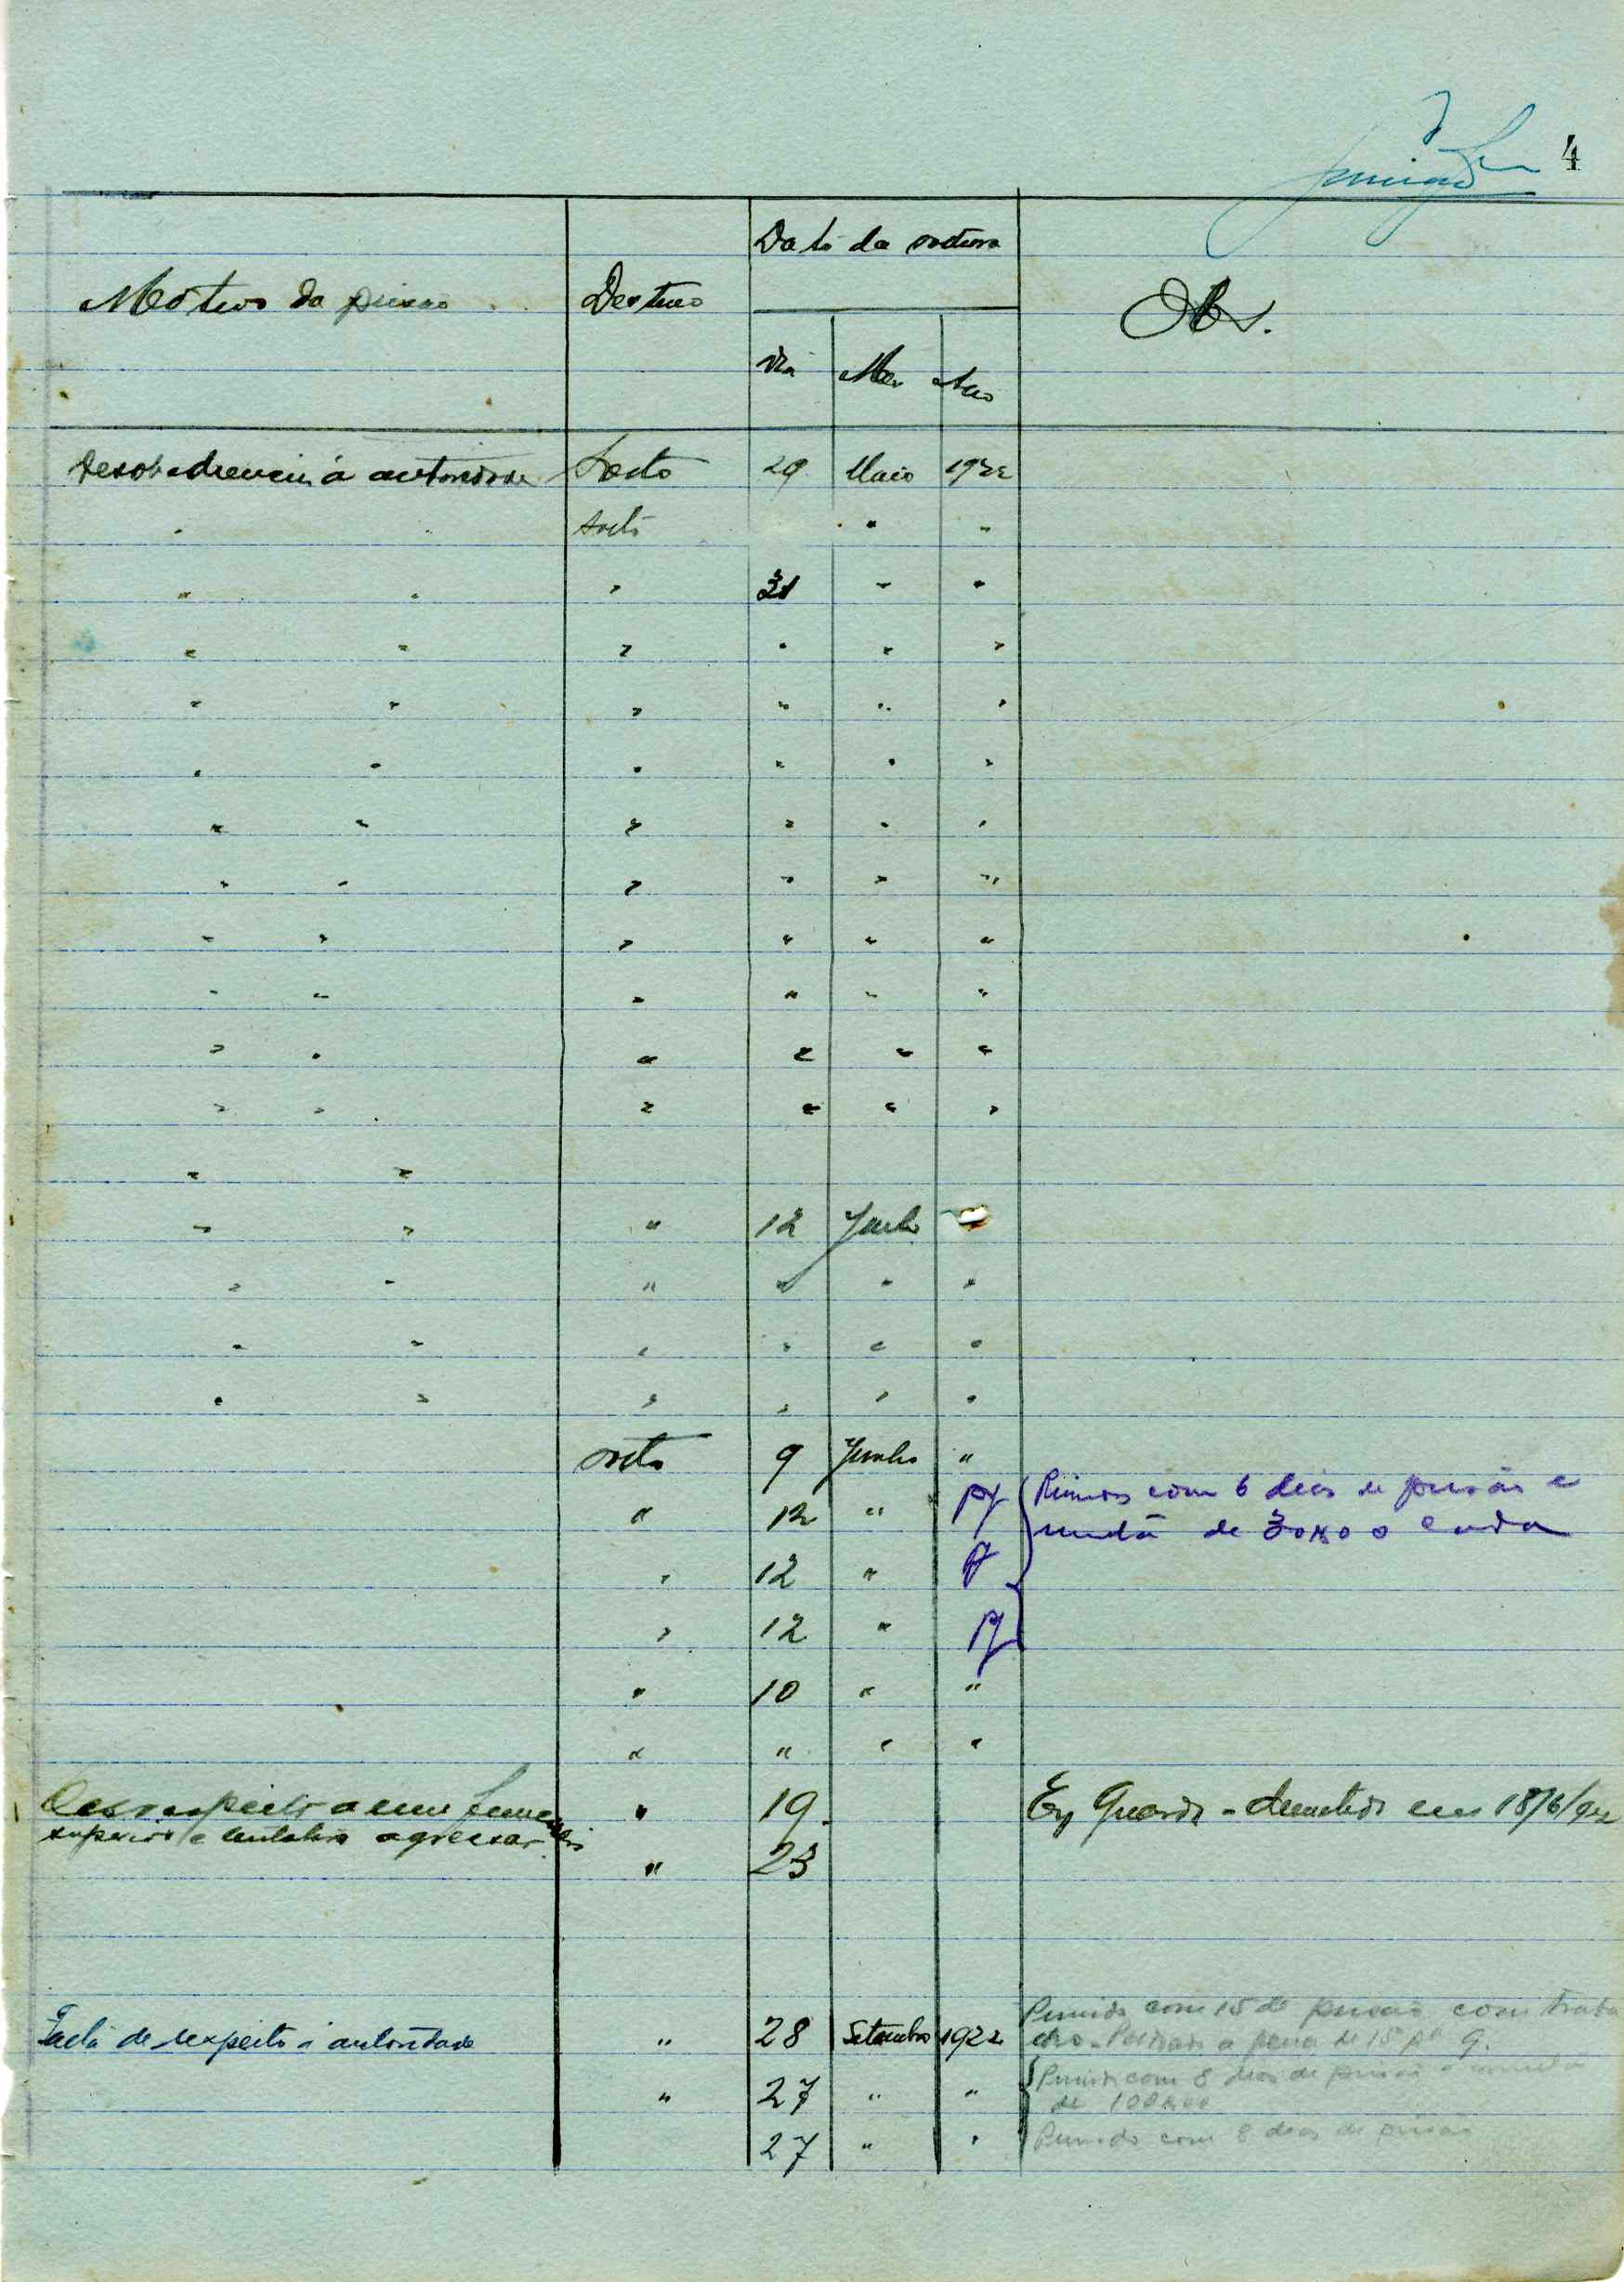 4
Data da soltura
Motivo da prisão Destino Obs.
Dia Mez Ano
Desobediencia á autoridade Solto 29 Maio 1922
" solto " "
" " " 31 " "
" " " " " "
" " " " " "
" " " " " "
" " " " " "
" " " " " "
" " " " " "
" " " " " "
" " " " " "
" " " " " "
" "
" " " 12 Junho
" " " " " "
" " " " " "
" " " " " "
solto 9 Junho "
" 12 " Punidos com 6 dias de prisão e
multa de 30$000 cada
" 12 "
" 12 "
" 10 " "
" " " "
Desrespeito a um " 19 Ex Guarda - demitido em 18/6/922
superior e tentativa agressão
" 23
Punido com 15 de prisão com traba
Falta de respeito á autoridade " 28 Setembro 1922 a pena de 15 pª 9.
" 27 " " Punido com 8 dias de prisão e multa
de 100$000
27 " " Punido com 8 dias de prisão